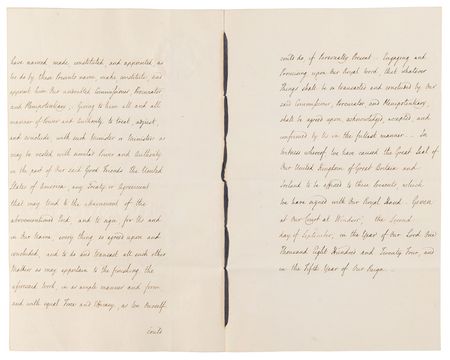 have named made constituted and appointed as
we do by these Presents name, make constitute, and
appoint him Our undoubted Commissioner, Procurator
and Plenipotentiary, Giving to him all and all
manner of Power and Authority to treat, adjust,
and conclude, with such Minister or Ministers as
may be vested with similar Power and Authority
on the part of Our said Good Friends the United
States of America, any Treaty or Agreement
that may tend to the attainment of the
abovementioned End, and to sign, for Us and
in Our Name, every thing so agreed upon and
concluded, and to do and transact all such other
Matters as may appertain to the finishing the
aforesaid Work, in as ample manner and form
and with equal Force and Efficacy, as We Ourself
could
could do, if Personally Present. Engaging and
Promising upon Our Royal Word, that whatever
Things shall be so transacted and concluded by Our
said Commissioner, Procurator, and Plenipotentiary,
shall be agreed upon acknowledged, accepted, and
confirmed by Us in the fullest manner. In
Witness whereof, We have caused the Great Seal of
Our United Kingdom of Great Britain and
Ireland to be affixed to these Presents which
We have signed with Our Royal Hand. Given
at Our Court at Windsor, the Second
day of September, in the Year of Our Lord One
Thousand Eight Hundred and Twenty Four, and
in the Fifth Year of Our Reign.